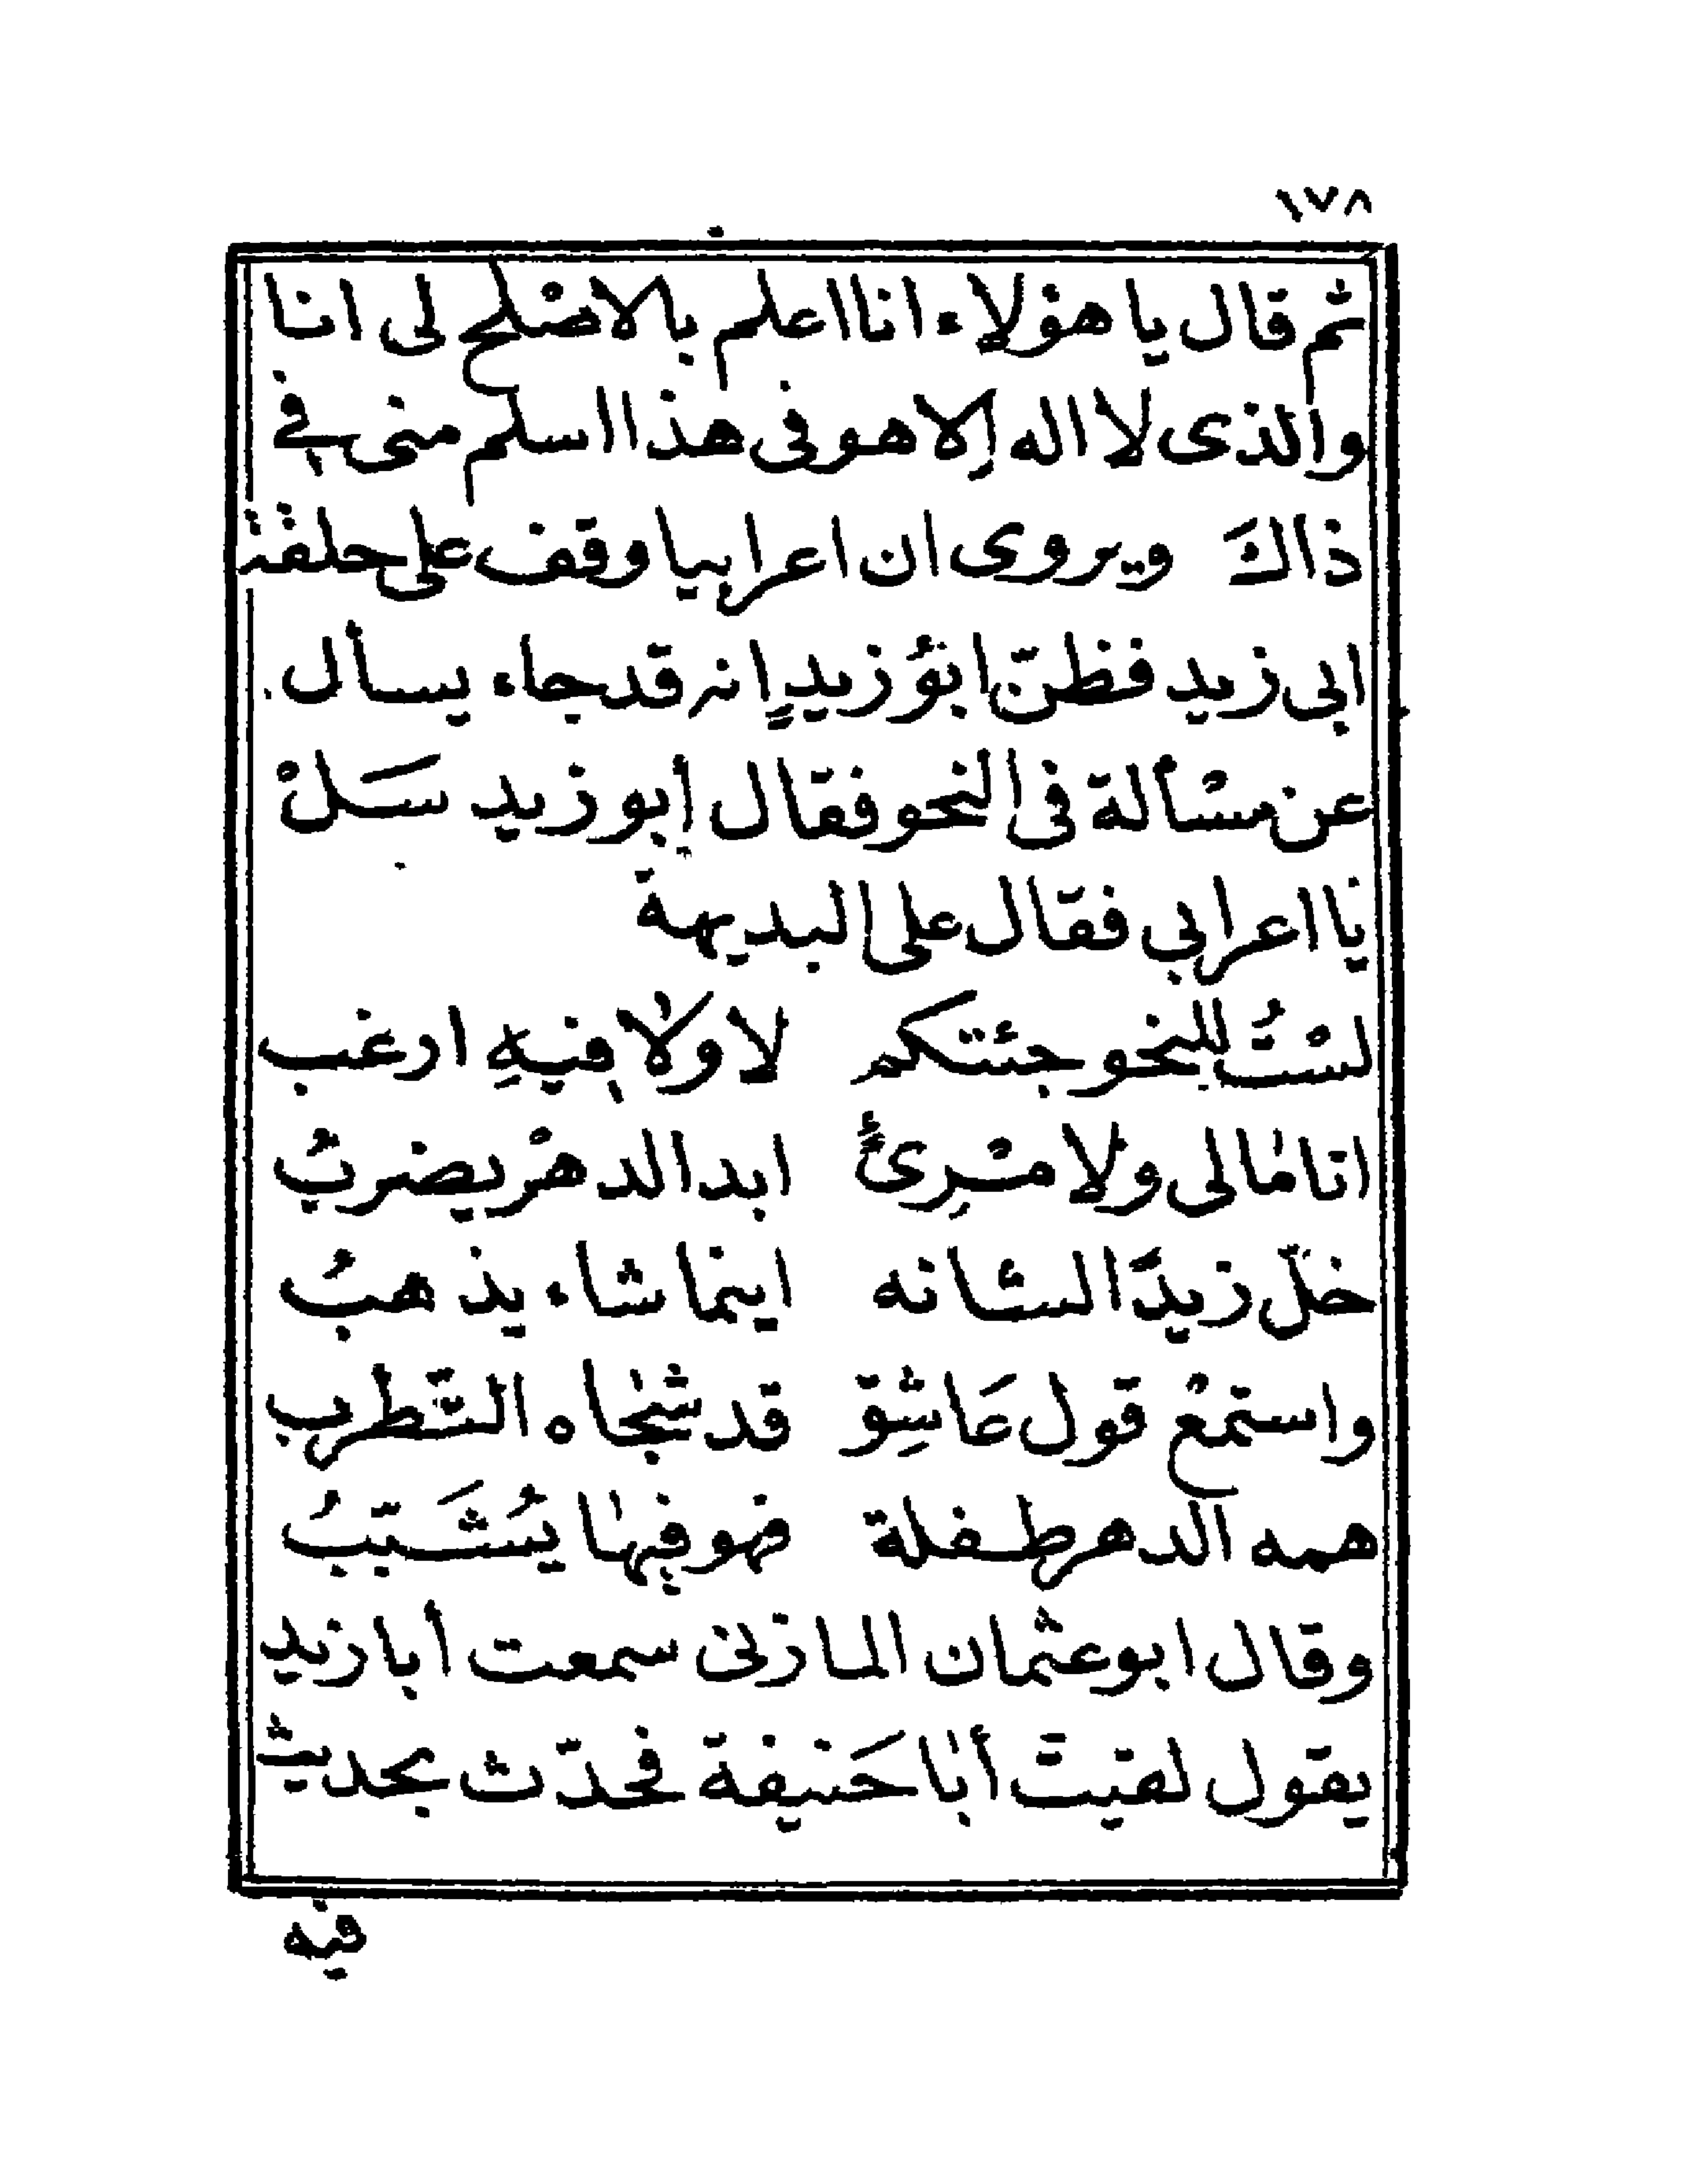 ١٧٨
ثم قال يا هؤلاء انا اعلم بالاصْلح لى انا
والذى لا اله إلا هو فى هذا اسلم منى في
ذاكَ ويروى ان اعرابيا وقف على حلقة
ابى زيد فظنّ ابوُ زيدٍ انه قد جاء يسأل
عن مسْألة فى النحو فقال أبو زيد سَلْ
يا اعرابي فقال على البديهة
لسْتُ للنحو جئتكم لا ولا فيهِ ارغب
انا مالى ولامْرِئٍ ابد الدهْر يضربُ
خلّ زيدًا لشأنه اينما شاء يذهبُ
واستمعْ قول عَاشِق قد شجاه التَّطرب
همه الدهر طفلة فهو فيها يُشَتبّبُ
وقال ابو عثمان المازنى سمعت أبا زيد
يقول لقيت أبا حَنيفة فحدّث بحديث
فيه